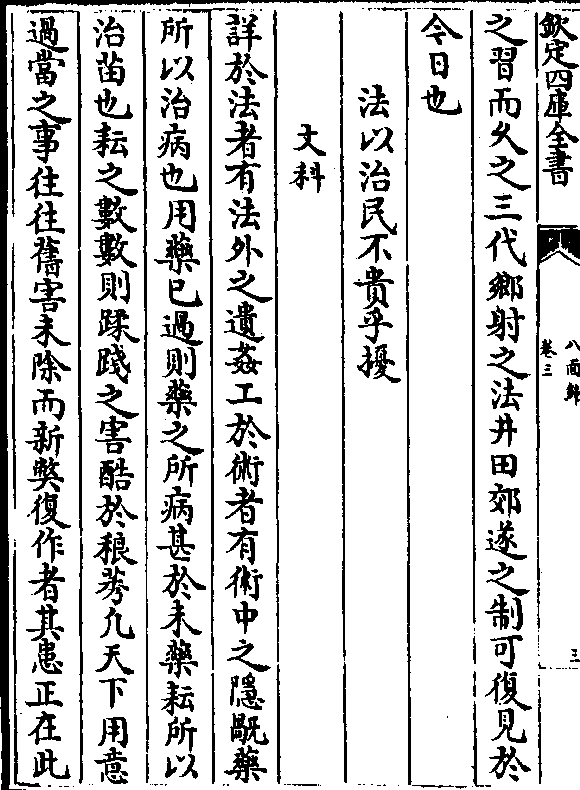 欽定四庫全書
八面鋒
卷三
三
之習而乆之三代鄉射之法井田郊遂之制可復見於
今日也
法以治民不貴乎擾
文科
詳於法者有法外之遺姦工於術者有術中之隱戤藥
所以治病也用藥已過則藥之所病甚於未藥耘所以
治苗也耘之數數則蹂踐之害酷於稂莠凡天下用意
過當之事往往舊害未除而新弊復作者其患正在此